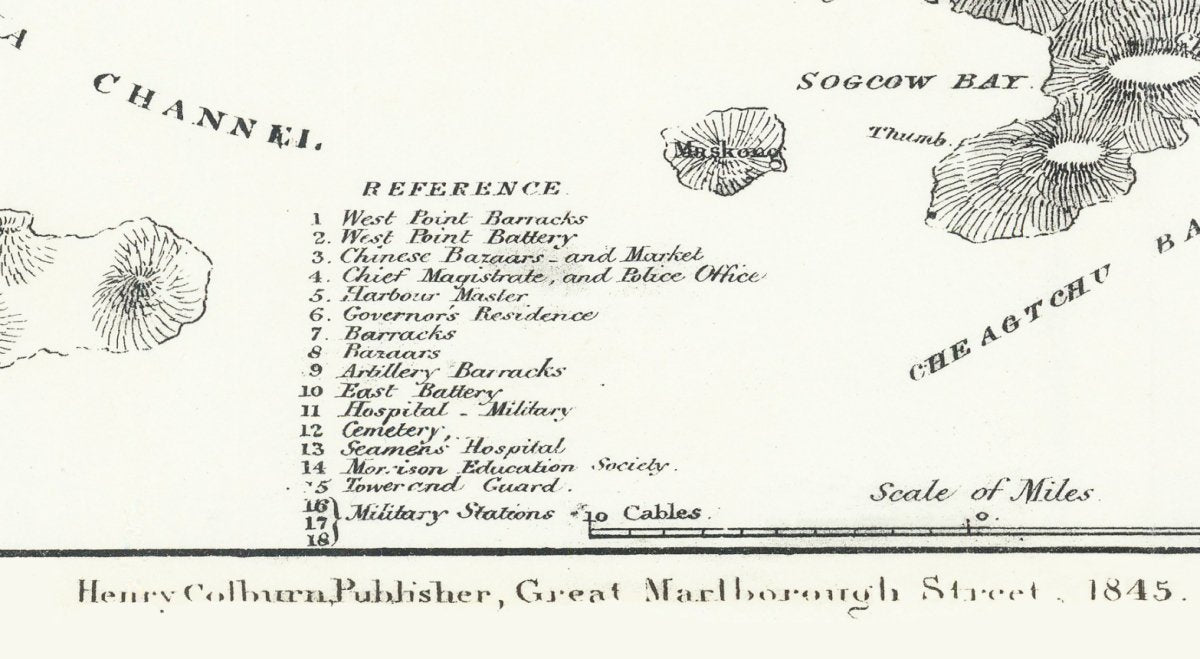 A
CHANNEL.
SOGCOW BAY.
Thumb.
Maskong
CHEAGTCHU BA
REFERENCE.
1 West Point Barracks
2. West Point Battery
3. Chinese Bazaars - and Market
4. Chief Magistrate, and Police Office
5. Harbour Master
6. Governor's Residence
7. Barracks
8 Bazaars
9 Artillery Barracks
10 East Battery
11 Hospital - Military
12 Cemetery,
13 Seamens Hospital
14 Morrison Education Society.
15 Tower and Guard.
16
17 Military Stations
18
Scale of Miles
10 Cables. 0.
Henry Colburn, Publisher, Great Marlborough Street. 1845.